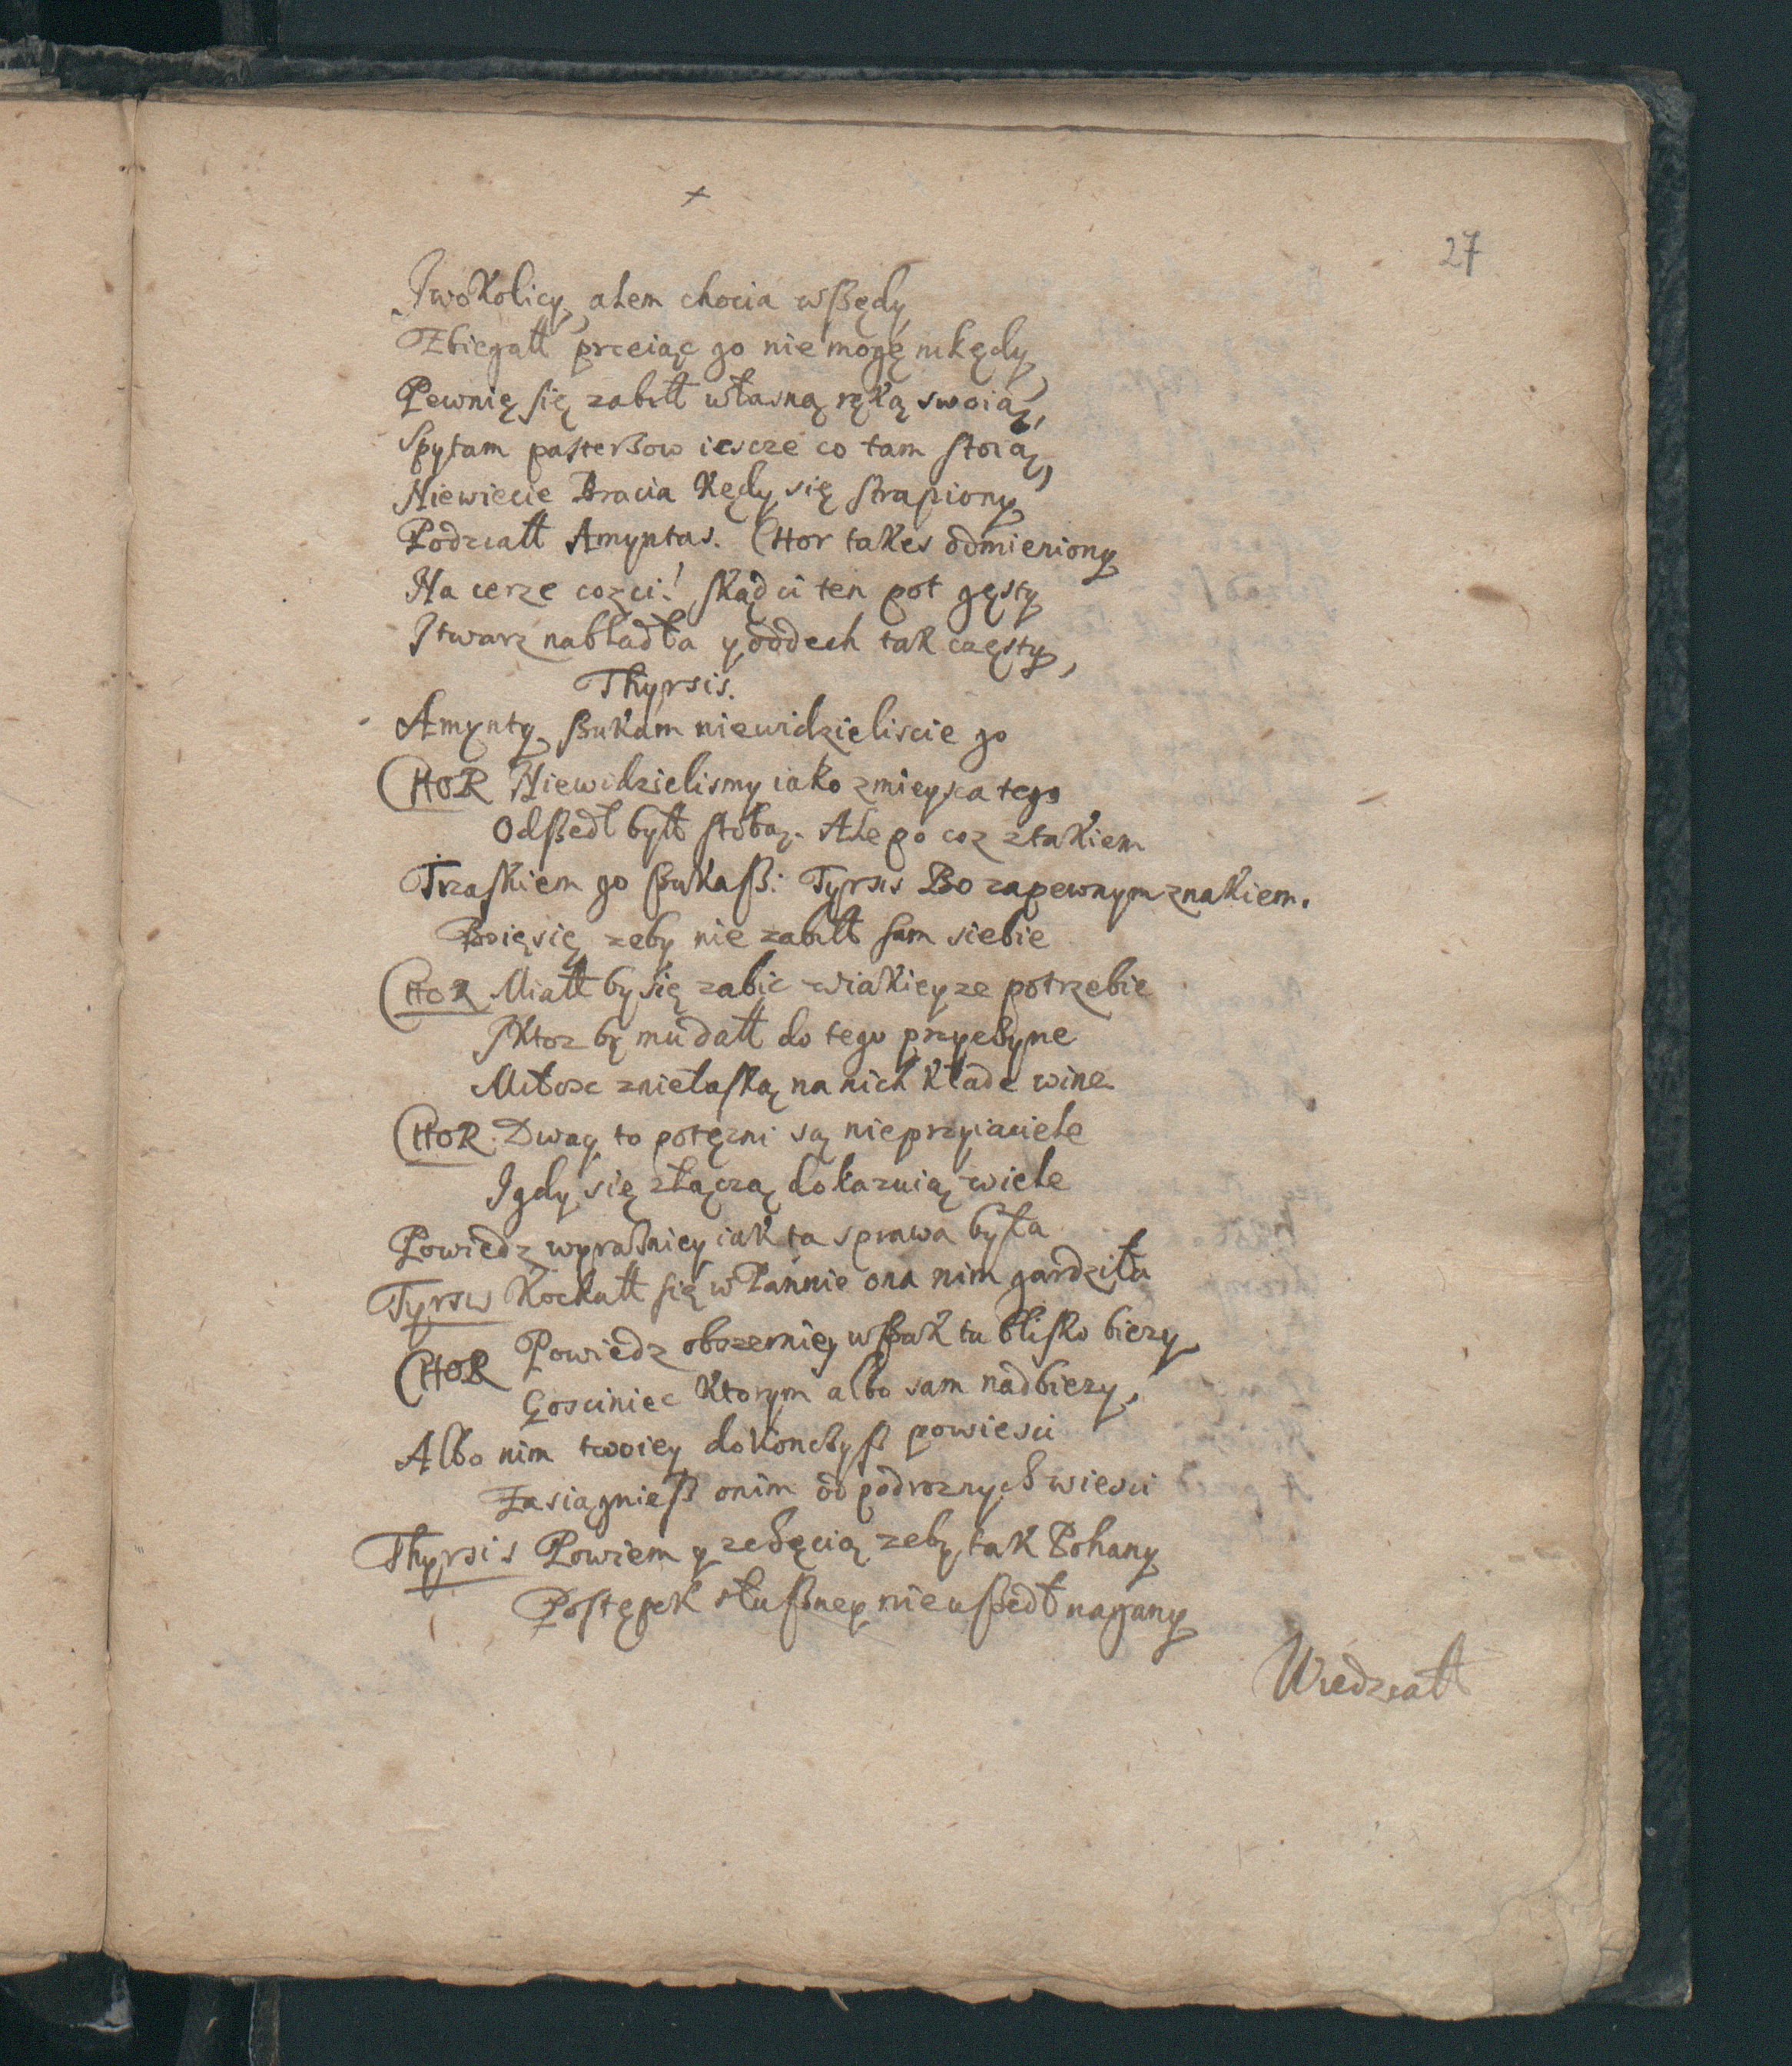 +
27
Jwokolicy, alem chocia wßędy
Zbiegałł przeiąc go nie mogę nikędy,
Pewnię się zabiłł własną ręką swoią,
Spytam pasterßow iescze co tam stoią,
Niewiecie Bracia kędy się strapiony
Podziałł Amyntas. CHor takes odmieniony
Na cerze cozci! skąd ci ten pot gęsty
J twarz nabladła y oddech tak częsty,
Thyrsis.
Amynty ßukam niewidzieliscie go
CHOR Niewidzielismy iako zmieysca tego
Odßedł byłł stobą. Ale po coz ztakiem
Trzaskiem go ßukaß: Tyrsis Bo zapewnym znakiem.
Boię się zeby nie zabiłł sam siebie
CHOR Miałł by się zabic wiakieyze potrzebie
Jktoz by mu dałł do tego przyczyne
Miłosc znielaską na nich kłade wine
CHOR. Dway to potęzni są nieprzyiaciele
J gdy się złączą dokazuią wiele
Powiedz wyraßniey iak ta sprawa była
Tyrsis Kochałł się w Pannie ona nim gardziła
CHOR Powiedz obszerniey wßak tu blisko biezy
Gosciniec ktorym albo sam nadbiezy,
Albo nim twoiey dokonczyß powiesci
Zasiągnieß onim od podroznych wiesci
Thyrsis Powiem y zchęcią zeby tak Pohany
Postępek słußney nieußedł nagany
Wiedziałł